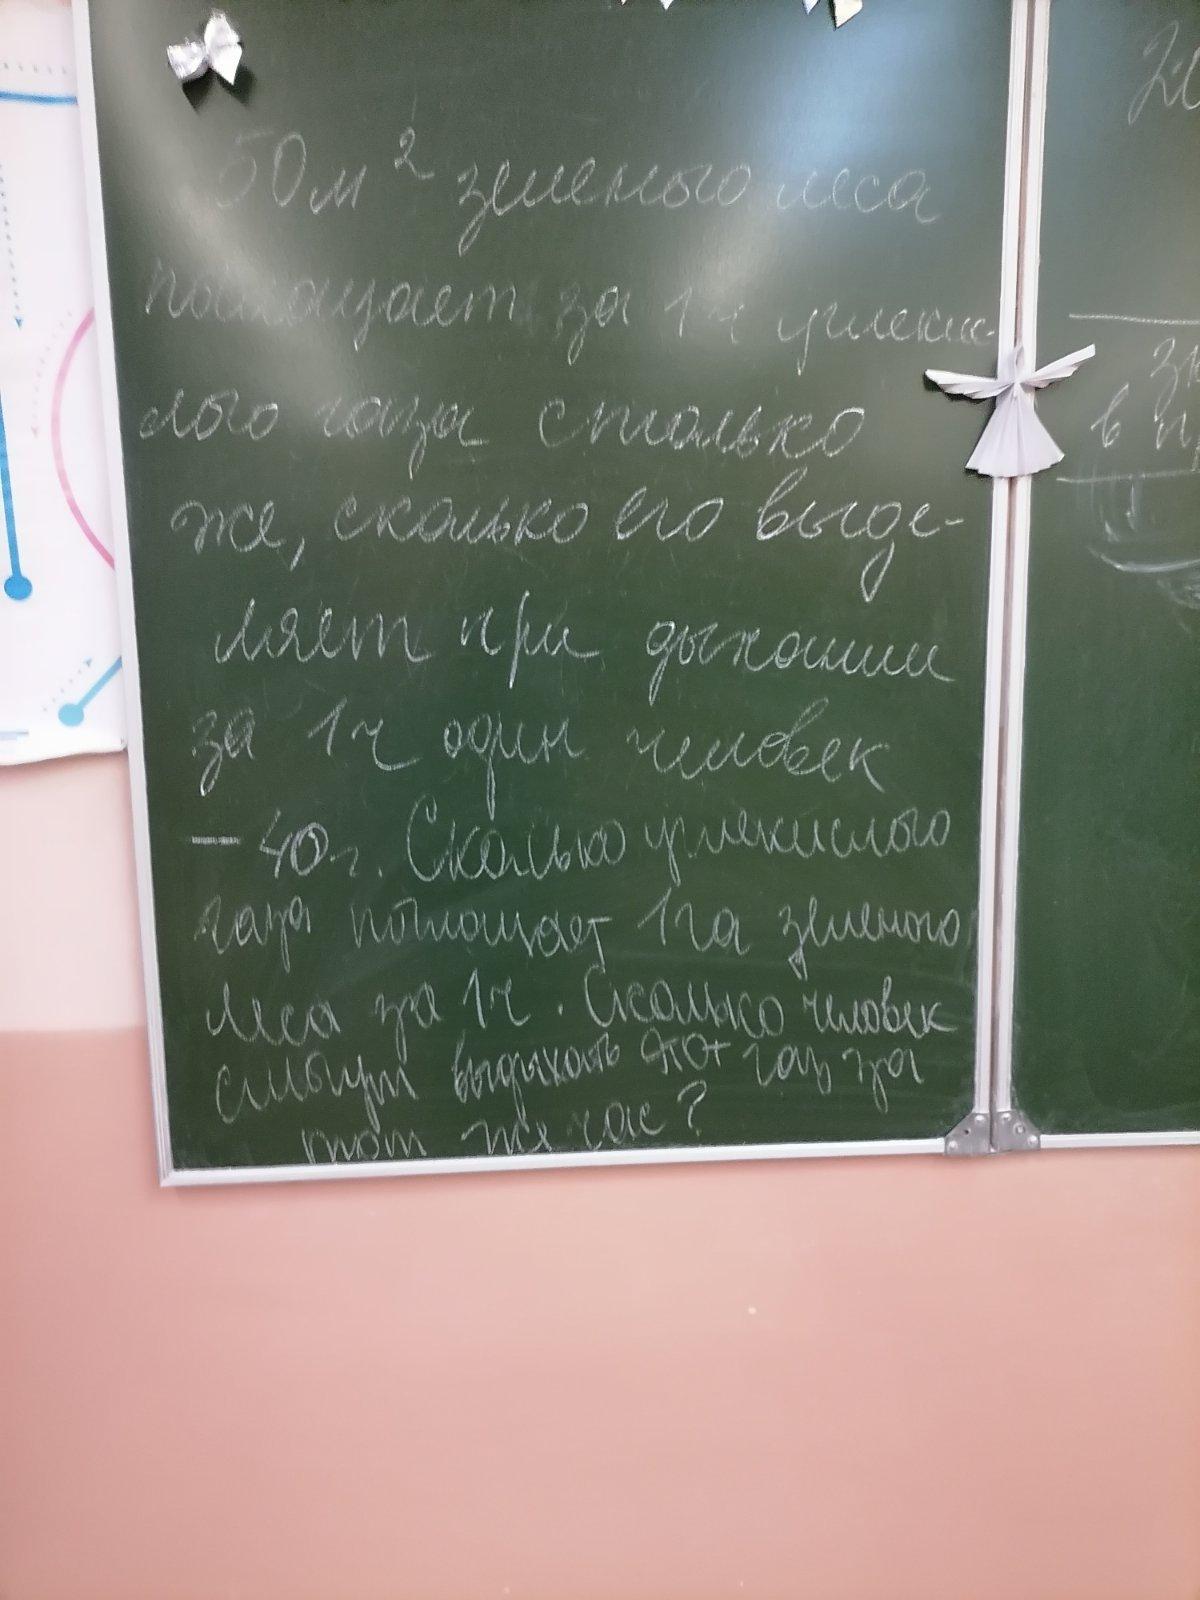 50 м² зеленого леса
поглощает за 1ч углекис-
лого газа столько
же, сколько его выде-
ляет при дыхании
за 1ч один человек
— 40 г. Сколько углекислого
газа поглощает 1 га зеленого
леса за 1ч. Сколько человек
смогут выдыхать этот газ за
тот же час?
в